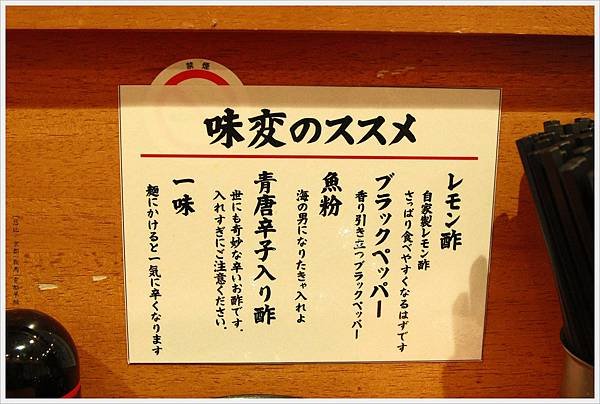 禁煙
味変のススメ
レモン酢
自家製レモン酢
さっぱり食べやすくなるはずです
ブラックペッパー
香り引き立つブラックペッパー
魚粉
海の男になりたきゃ入れよ
青唐辛子入り酢
世にも奇妙な辛いお酢です。
入れすぎにご注意ください。
一味
麺にかけると一気に辛くなります